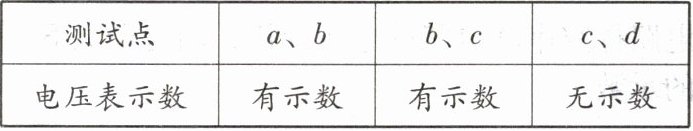 测试点 a、b b、c c、d
电压表示数 有示数 有示数 无示数